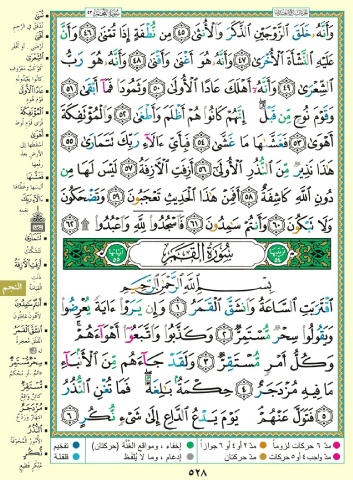 سُورَةُ النَّجْمِ ٥٣
وَأَنَّهُ خَلَقَ الزَّوْجَيْنِ الذَّكَرَ وَالْأُنثَىٰ ٤٥ مِن نُّطْفَةٍ إِذَا تُمْنَىٰ ٤٦ وَأَنَّ
عَلَيْهِ النَّشْأَةَ الْأُخْرَىٰ ٤٧ وَأَنَّهُ هُوَ أَغْنَىٰ وَأَقْنَىٰ ٤٨ وَأَنَّهُ هُوَ رَبُّ
الشِّعْرَىٰ ٤٩ وَأَنَّهُ أَهْلَكَ عَادًا الْأُولَىٰ ٥٠ وَثَمُودَا فَمَا أَبْقَىٰ ٥١
وَقَوْمَ نُوحٍ مِّن قَبْلُ إِنَّهُمْ كَانُوا هُمْ أَظْلَمَ وَأَطْغَىٰ ٥٢ وَالْمُؤْتَفِكَةَ
أَهْوَىٰ ٥٣ فَغَشَّاهَا مَا غَشَّىٰ ٥٤ فَبِأَيِّ آلَاءِ رَبِّكَ تَتَمَارَىٰ ٥٥
هَٰذَا نَذِيرٌ مِّنَ النُّذُرِ الْأُولَىٰ ٥٦ أَزِفَتِ الْآزِفَةُ ٥٧ لَيْسَ لَهَا مِن
دُونِ اللَّهِ كَاشِفَةٌ ٥٨ أَفَمِنْ هَٰذَا الْحَدِيثِ تَعْجَبُونَ ٥٩ وَتَضْحَكُونَ
وَلَا تَبْكُونَ ٦٠ وَأَنتُمْ سَامِدُونَ ٦١ فَاسْجُدُوا لِلَّهِ وَاعْبُدُوا ۩ ٦٢
سُورَةُ الْقَمَرِ
بِسْمِ اللَّهِ الرَّحْمَٰنِ الرَّحِيمِ
اقْتَرَبَتِ السَّاعَةُ وَانشَقَّ الْقَمَرُ ١ وَإِن يَرَوْا آيَةً يُعْرِضُوا
وَيَقُولُوا سِحْرٌ مُّسْتَمِرٌّ ٢ وَكَذَّبُوا وَاتَّبَعُوا أَهْوَاءَهُمْ
وَكُلُّ أَمْرٍ مُّسْتَقِرٌّ ٣ وَلَقَدْ جَاءَهُم مِّنَ الْأَنبَاءِ
مَا فِيهِ مُزْدَجَرٌ ٤ حِكْمَةٌ بَالِغَةٌ فَمَا تُغْنِ النُّذُرُ
٥ فَتَوَلَّ عَنْهُمْ يَوْمَ يَدْعُ الدَّاعِ إِلَىٰ شَيْءٍ نُّكُرٍ ٦
النجم
مدّ ٦ حركات لزوماً
مدّ ٢ أو ٤ أو ٦ جوازاً
إخفاء، ومواقع الغُنَّة (حركتان)
تفخيم
مدّ واجب ٤ أو ٥ حركات
مدّ حركتان
إدغام، وما لا يُلفَظ
قلقلة
٥٢٨